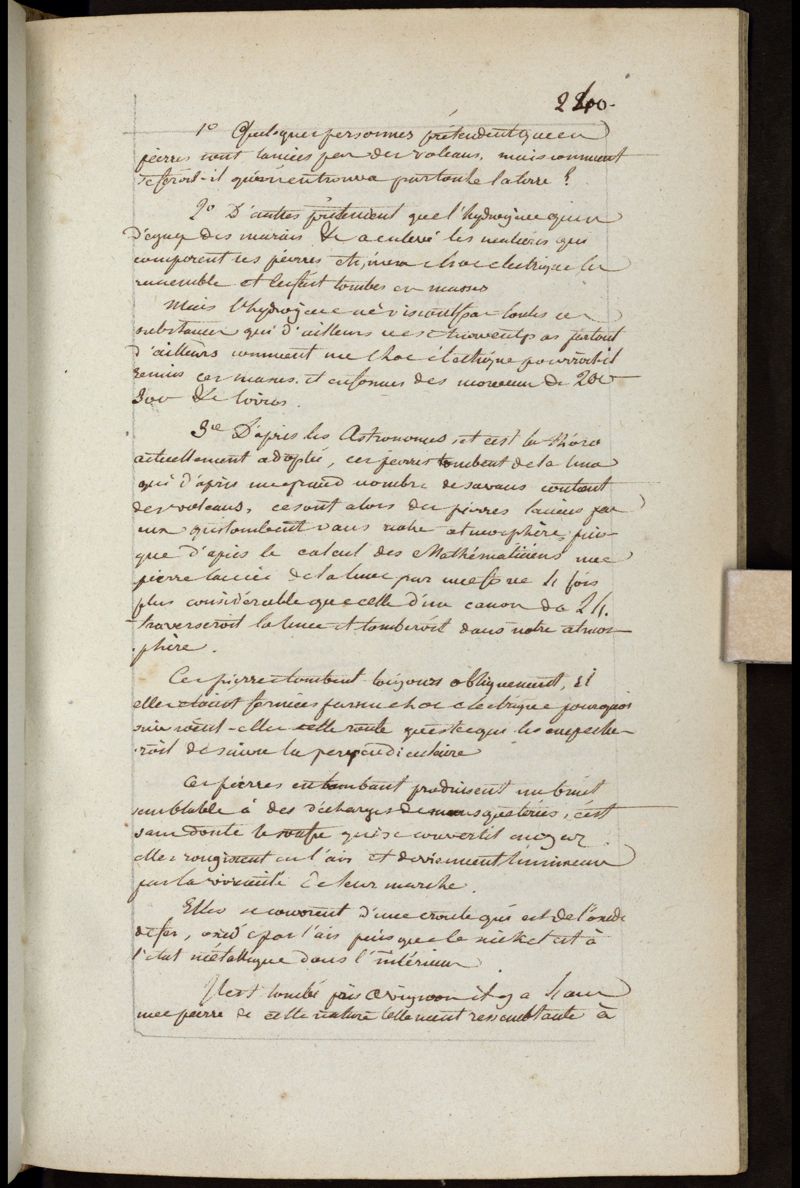 240.
1º Quelques personnes prétendent que ces
pierres sont lancées par des volcans, mais comment
se feroit-il qu'on en trouva par toute la terre ?
2º D'autres prétendent que l'hydrogène qui se
dégage des marais &c a enlevé les matières qui
composent ces pierres et, qu'un choc electrique les
rassemble et les fait tomber en masses
Mais l'hydrogène ne dissout pas toutes ces
substances qui d'ailleurs ne se trouvent pas partout
d'ailleurs comment un choc électrique pourroit-il
réunir ces masses et en former des morceaux de 200
300 &c livres.
3º D'après les Astronomes et c'est la théorie
actuellement adoptée, ces pierres tombent de la lune
qui d'après un grand nombre de savans contient
des volcans, ce sont alors des pierres lancées par
eux qui tombent dans notre atmosphère, puis-
que d'après le calcul des Mathématiciens une
pierre lancée de la lune par une force 4 fois
plus considérable que celle d'un canon de 24.
traverseroit la lune et tomberoit dans notre atmos-
phère.
Ces pierres tombent toujours obliquement, si
elles étaient formées par un choc electrique pourquoi
suivroient-elles cette route qu'est ce qui les empeche-
roit de suivre la perpendiculaire
Ces pierres en tombant produisent un bruit
semblable à des décharges de mousqueteries, c'est
sans doute le soufre qui se convertit en gaz.
elles rougissent en l'air et deviennent lumineuses
par la vivacité de leur marche.
Elles se couvrent d'une croute qui est de l'oxide
de fer, oxidé par l'air puisque le nickel est à
l'état métallique dans l'intérieur
Il est tombé près Avignon il y a 4 ans
une pierre de cette nature tellement ressemblante à